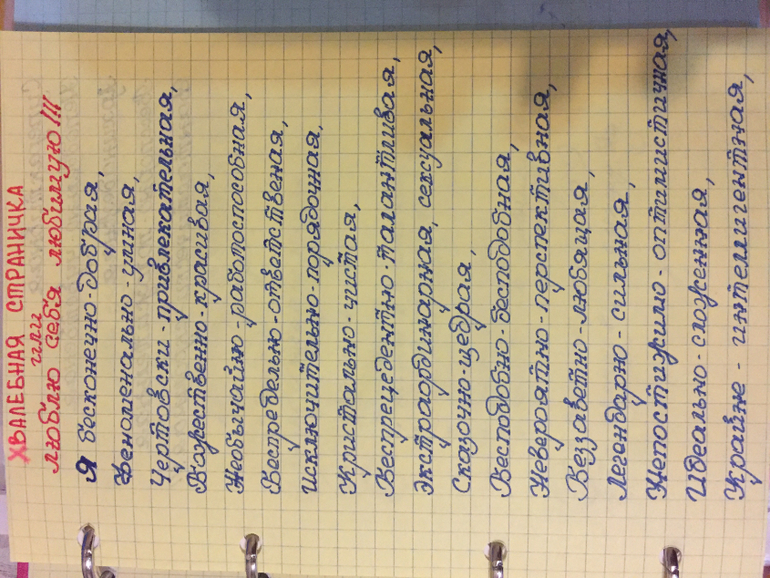 ХВАЛЕБНАЯ СТРАНИЧКА
или
люблю себя любимую!!!
Я бесконечно-добрая,
Феноменально-умная,
Чертовски-привлекательная,
Божественно-красивая,
Необычайно-работоспособная,
Беспредельно-ответственая,
Исключительно-порядочная,
Кристально-чистая,
Беспрецедентно-талантливая,
Экстраординарная, сексуальная,
Сказочно-щедрая,
Бесподобно-бесподобная,
Невероятно-перспективная,
Беззаветно-любящая,
Легендарно-сильная,
Непостижимо-оптимистичная,
Идеально-сложенная,
Крайне-интеллигентная,